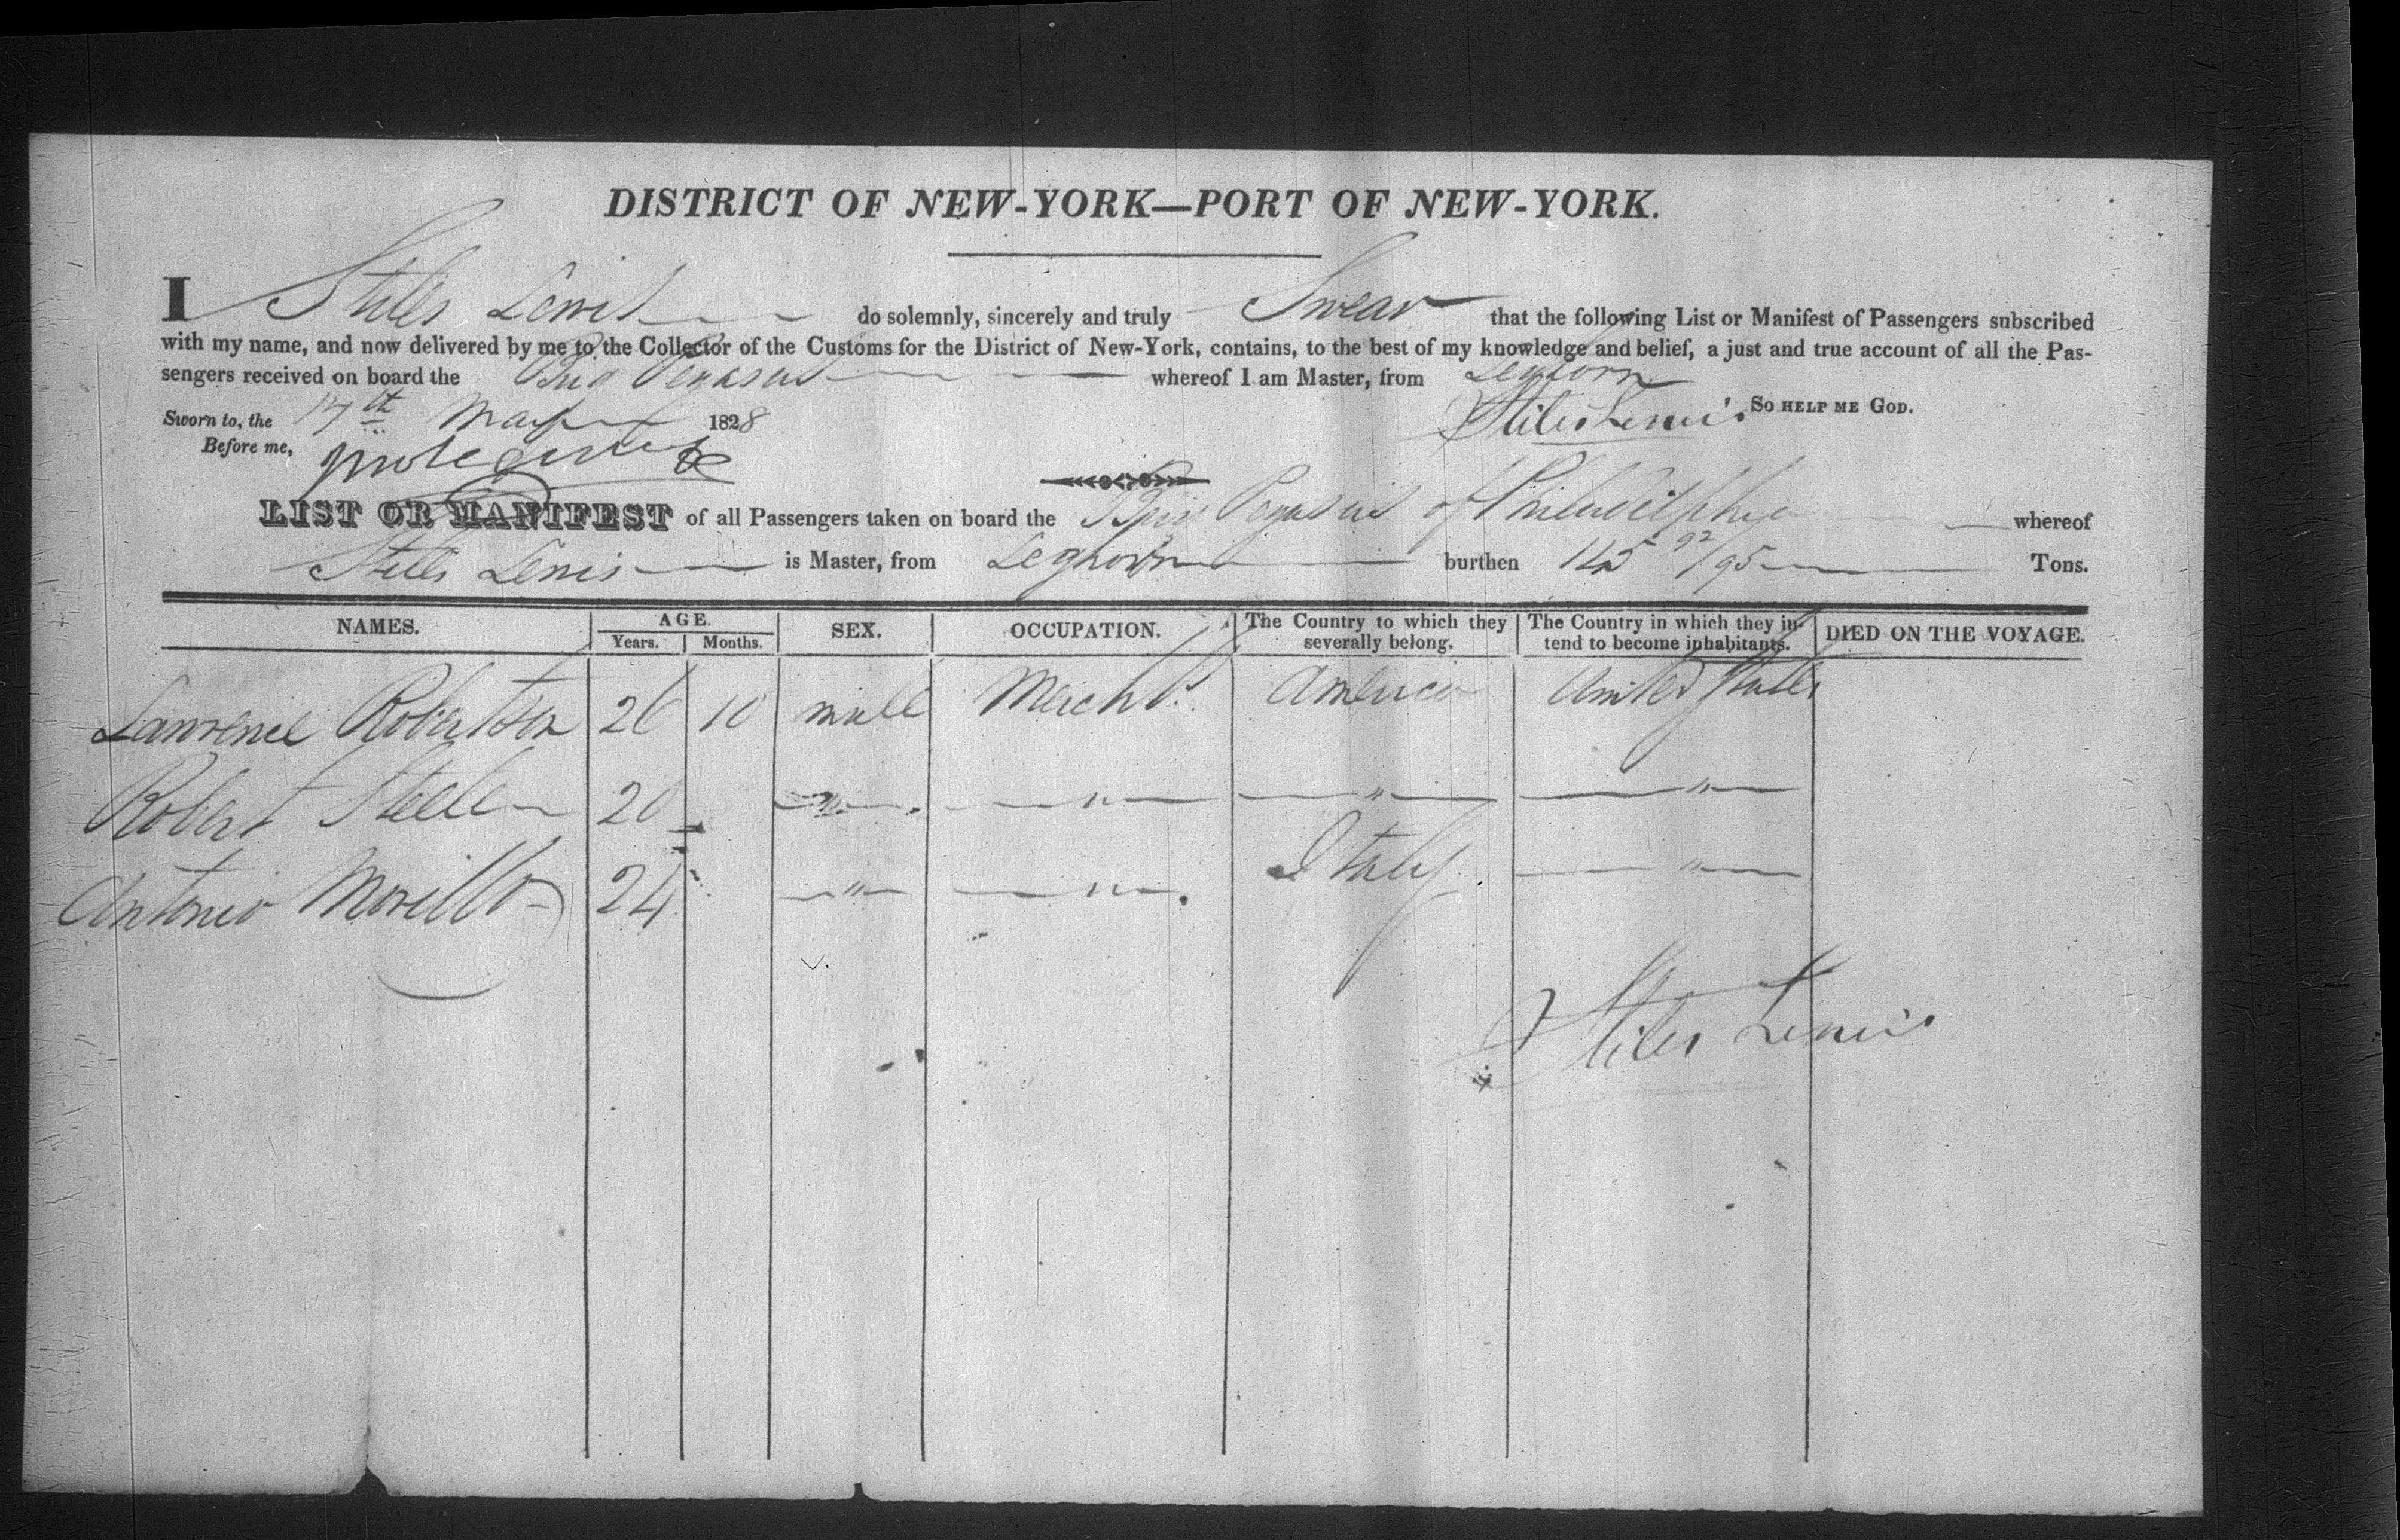 DISTRICT OF NEW-YORK—PORT OF NEW-YORK.
I Stiles Lewis do solemnly, sincerely and truly Swear that the following List or Manifest of Passengers subscribed
with my name, and now delivered by me to the Collector of the Customs for the District of New-York, contains, to the best of my knowledge and belief, a just and true account of all the Pas-
sengers received on board the Brig Pegasus whereof I am Master, from Leghorn
Sworn to, the 17th May 1828 Stiles Lewis So HELP ME GOD.
Before me,
LIST OR MANIFEST of all Passengers taken on board the Brig Pegasus of Philadelphia whereof
Stiles Lewis is Master, from Leghorn burthen 145 92/95 Tons.
NAMES. AGE. Years. Months. SEX. OCCUPATION. The Country to which they severally belong. The Country in which they in-tend to become inhabitants. DIED ON THE VOYAGE.
Lawrence Robertson 26 10 male Mercht. America United States
Robert Steele 20 — " — — " — — " — — " —
Antonio Morillo 24 — " — — " — Italy — " —
Stiles Lewis